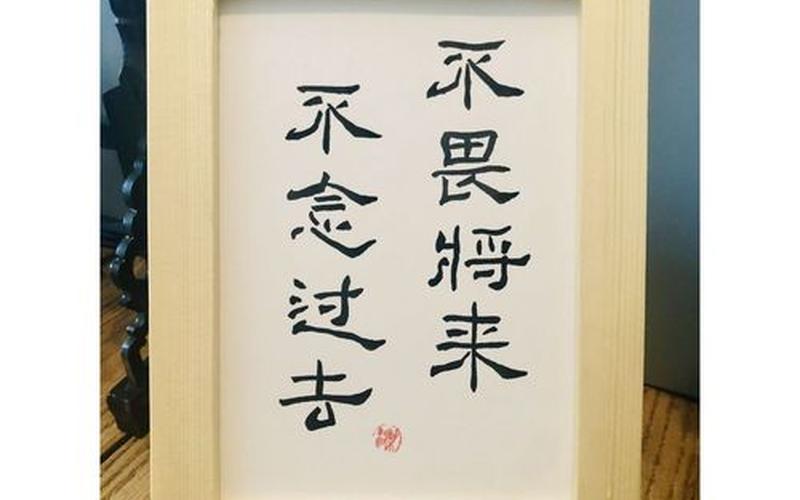 不畏將来
不念过去